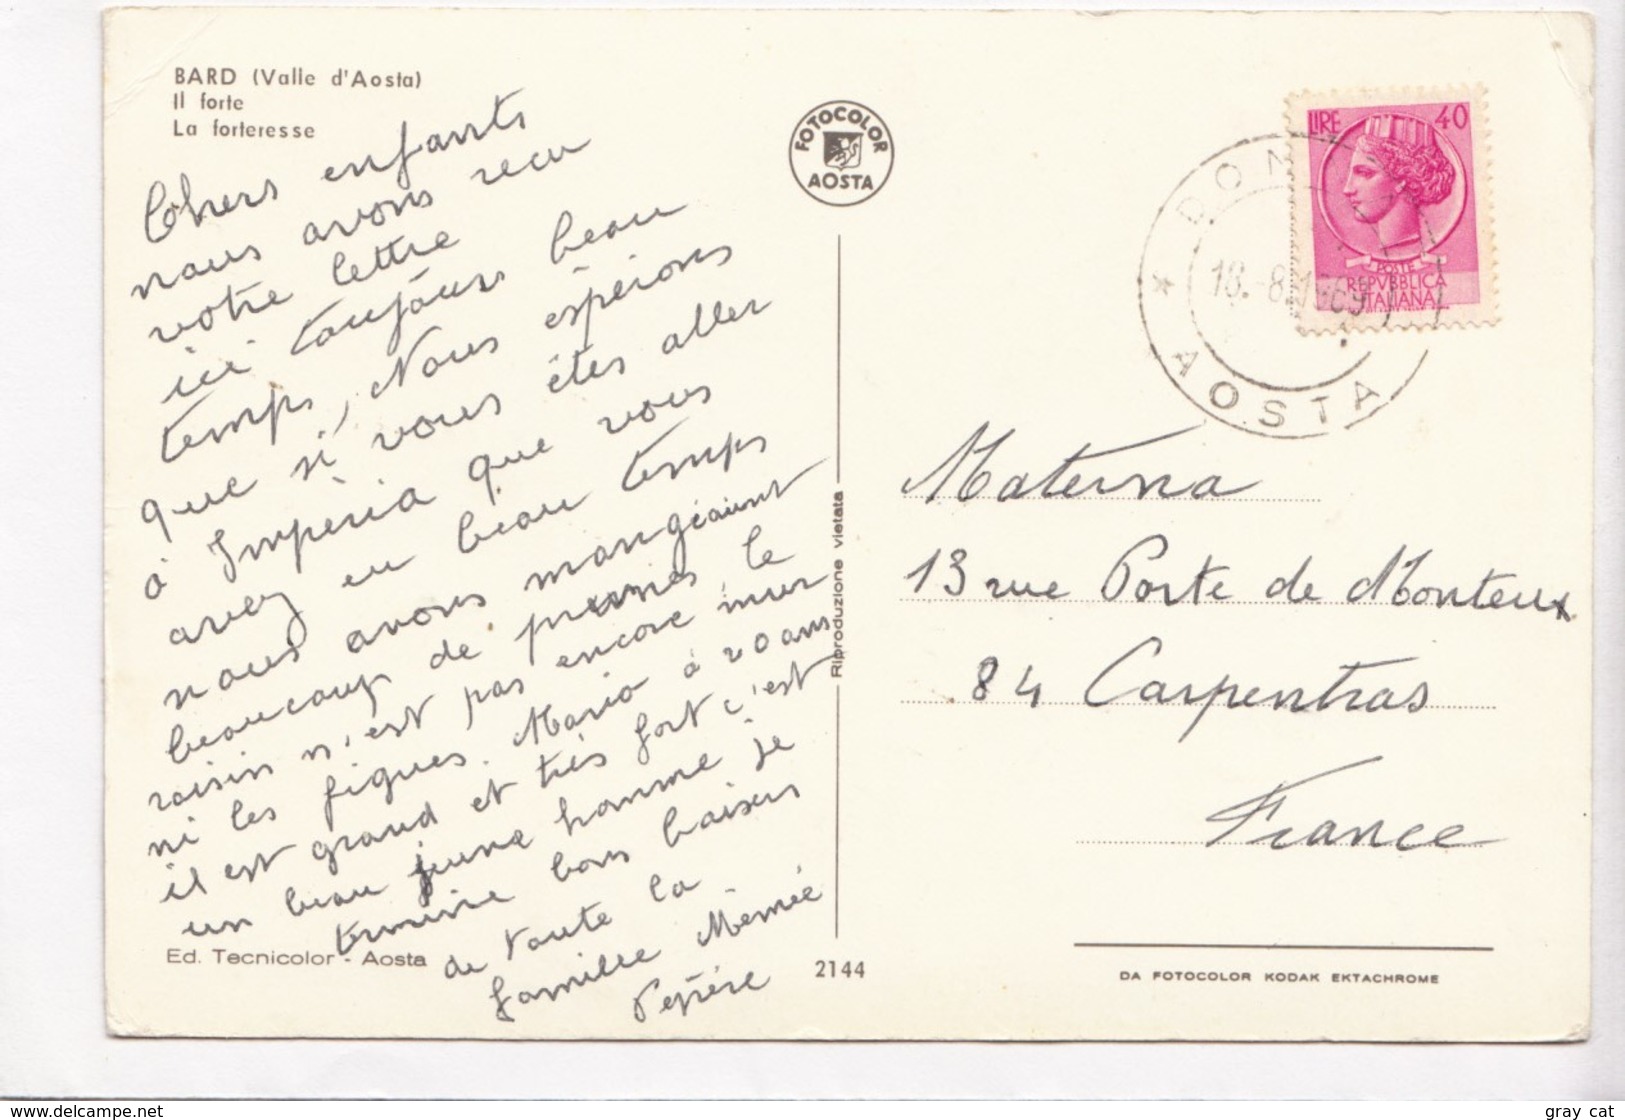 BARD (Valle d'Aosta)
Il forte
La forteresse
Chers enfants
nous avons recu
votre lettre
ici toujours beau
temps, Nous espérions
que si vous étes aller
à Impéria que vous
avez eu beau temps
nous avons mangéaient
beaucoup de prunes le
raisin n'est pas encore mur
ni les figues. Mario à 20 ans
il est grand et très fort c'est
un beau jeune homme je
termine bons baisers
de toute la
famille Mémée
Pépère
Ed. Tecnicolor - Aosta
2144
Riproduzione vietata
FOTOCOLOR
AOSTA
LIRE 40
POSTE
REPVBBLICA
ITALIANA
* DON
18.-8.1969
AOSTA
Materna
13 rue Porte de Monteux
84 Carpentras
France
DA FOTOCOLOR KODAK EKTACHROME
www.delcampe.net
gray_cat